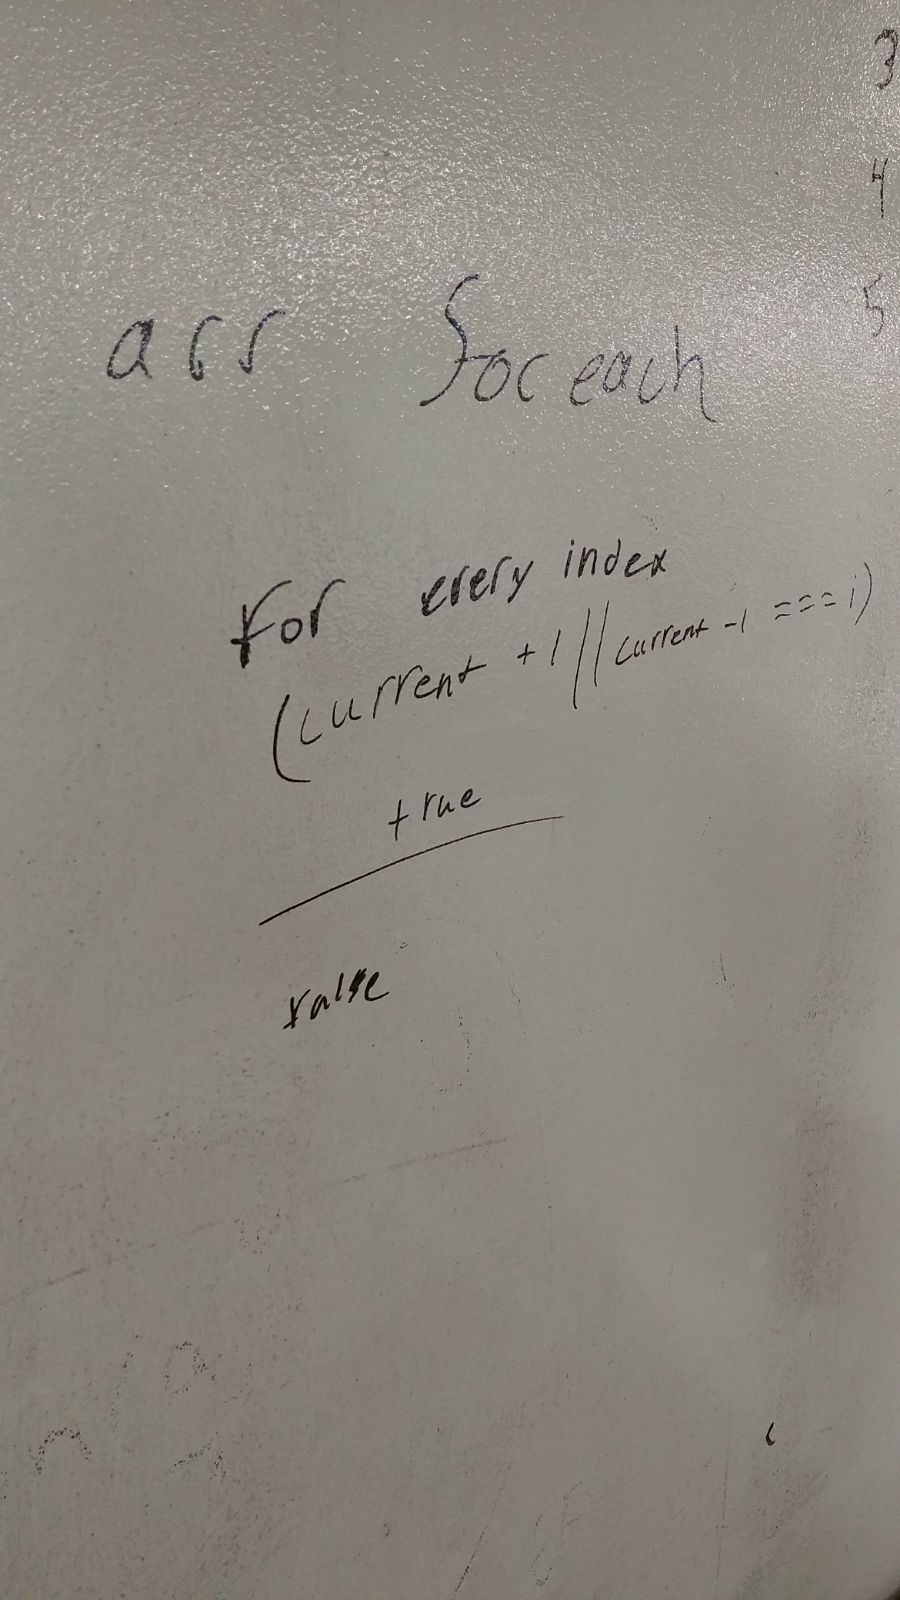 3
4
5
arr foreach
For every index
(current +1 || current -1 === i)
true
false